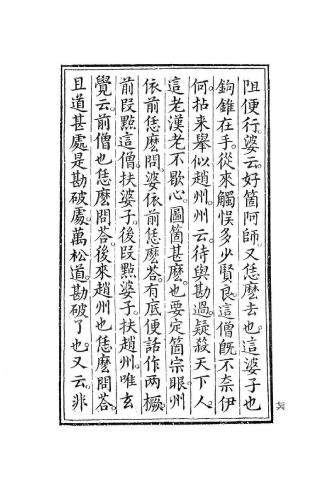 阻便行。婆云。好箇阿師又恁麼去也。這婆子也
鉤錐在手。從來觸悞多少賢良。這僧旣不柰伊
何。拈来舉似趙州。州云。待與勘過。疑殺天下人。
這老漢老不歇心。圖箇甚麼。也要定箇宗眼。州
依前恁麼問。婆依前恁麼荅。有底便話作兩橛。
前叚點這僧扶婆子。後叚點婆子。扶趙州。唯玄
覺云。前僧也恁麼問荅。後来趙州也恁麼問荅。
且道甚處是勘破處。萬松道。勘破了也。又云。非